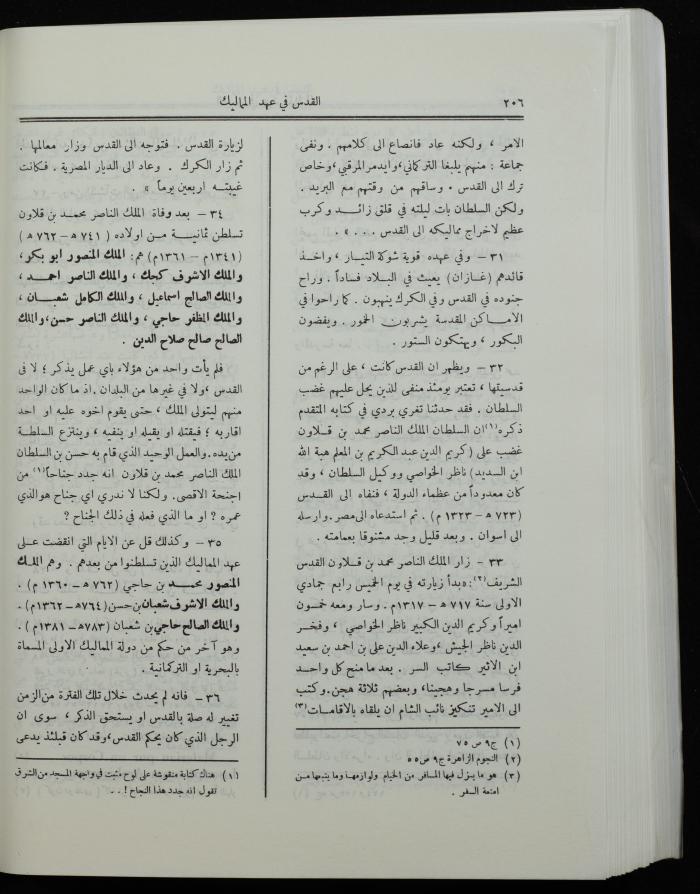 ٢٠٦
القدس في عهد المماليك
الامر ، ولكنه عاد فانصاع الى كلامهم . ونفى
جماعة : منهم يلبغا التركماني،وايدمر المرقبي،وخاص
ترك الى القدس . وساقهم من وقتهم مع البريد .
ولكن السلطان بات ليلته في قلق زائد وكرب
عظيم لاخراج مماليكه الى القدس . . . » .
٣١ – وفي عهده قوية شوكة التيار ، واخذ
قائدهم (غازان) يعيث في البلاد فساداً . وراح
جنوده في القدس وفي الكرك ينهبون . كما راحوا في
الاماكن المقدسة يشربون الخمور . ويفضون
البكور ، ويهتكون الستور .
٣٢ – ويظهر ان القدس كانت ، على الرغم من
قدسيتها ، تعتبر يومئذ منفى للذين يحل عليهم غضب
السلطان . فقد حدثنا تغري بردي في كتابه المتقدم
ذكره(١)ان السلطان الملك الناصر محمد بن قلاون
غضب على (كريم الدين عبد الكريم بن المعلم هبة الله
ابن السديد) ناظر الخواصي ووكيل السلطان ، وقد
كان معدوداً من عظماء الدولة ، فنفاه الى القدس
(٧٢٣ ه – ١٣٢٣ م) . ثم استدعاه الى مصر. وارسله
الى اسوان . وبعد قليل وجد مشنوقا بعمامته .
٣٣ – زار الملك الناصر محمد بن قلاون القدس
الشريف(٢): «بدأ زيارته في يوم الخميس رابع جمادي
الاولى سنة ٧١٧ ه – ١٣١٧ م . وسار ومعه خمسون
اميراً وكريم الدين الكبير ناظر الخواصي ، وفخر
الدين ناظر الجيش ،وعلاء الدين علي بن احمد بن سعيد
ابن الاثير كاتب السر . بعد ما منح كل واحد
فرسا مسرجا وهجينا، وبعضهم ثلاثة هجن.وكتب
الى الامير تنكيز نائب الشام ان يلقاه بالاقامات(٣)
(١) ج٩ ص ٧٥
(٢) النجوم الزاهرة ج٩ ص ٥٥
(٣) هو ما ينزل فيها المسافر من الخيام ولوازمها وما يتبعها من
امتعة السفر .
لزيارة القدس . فتوجه الى القدس وزار معالمها .
ثم زار الكرك . وعاد الى الديار المصرية . فكانت
غيبته اربعين يوماً » .
٣٤ – بعد وفاة الملك الناصر محمد بن قلاون
تسلطن ثمانية من اولاده ( ٧٤١ ه – ٧٦٢ ه )
(١٣٤١م – ١٣٦١م) هم: الملك المنصور ابو بكر،
والملك الاشرف كجك ، والملك الناصر احمد ،
والملك الصالح اسماعيل ، والملك الكامل شعبان ،
والملك المظفر حاجي ، والملك الناصر حسن،والملك
الصالح صالح صلاح الدين .
فلم يأت واحد من هؤلاء باي عمل يذكر ؛ لا في
القدس ،ولا في غيرها من البلدان .اذ ما كان الواحد
منهم ليتولى الملك ، حتى يقوم اخوه عليه او احد
اقاربه ؛ فيقتله او يقيله او ينفيه ، وينتزع السلطة
من يده. والعمل الوحيد الذي قام به حسن بن السلطان
الملك الناصر محمد بن قلاون انه جدد جناحاً(١) من
اجنحة الاقصى. ولكنا لا ندري اي جناح هو الذي
عمره ؟ او ما الذي فعله في ذلك الجناح ؟
٣٥ – وكذلك قل عن الايام التي انقضت على
عهد المماليك الذين تسلطنوا من بعدهم . وهم الملك
المنصور محمد بن حاجي (٧٦٢ ه – ١٣٦٠ م) .
والملك الاشرف شعبان بن حسن (٧٦٤ه – ١٣٦٢م) .
والملك الصالح حاجي بن شعبان (٧٨٣ه – ١٣٨١م) .
وهو آخر من حكم من دولة المماليك الاولى المسماة
بالبحرية او التركمانية .
٣٦ – فانه لم يحدث خلال تلك الفترة من الزمن
تغيير له صلة بالقدس او يستحق الذكر ، سوى ان
الرجل الذي كان يحكم القدس،وقد كان قبلئذ يدعى
(١) هناك كتابة منقوشة على لوح مثبت في واجهة المسجد من الشرق
تقول انه جدد هذا الجناح ! . .